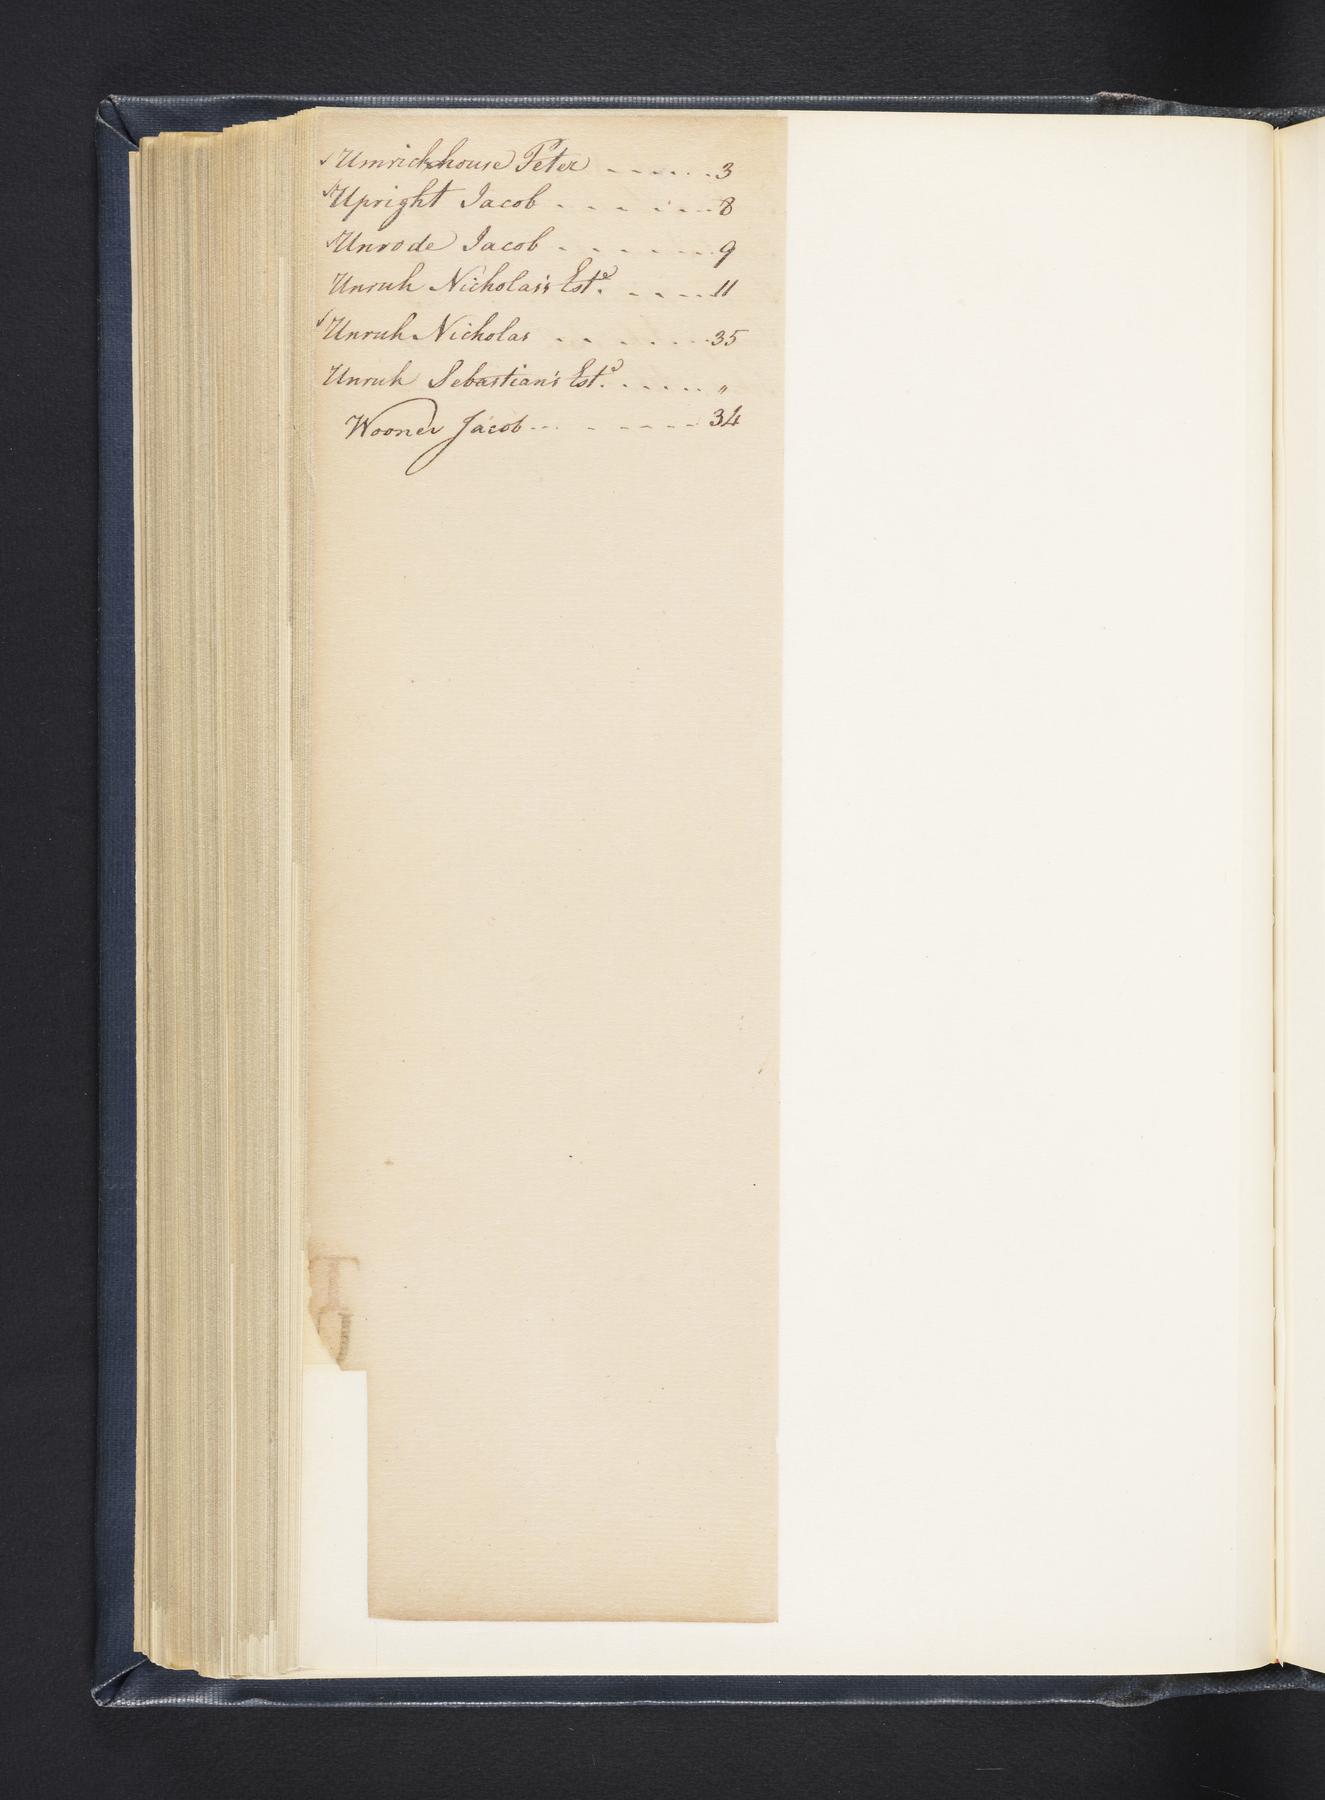 √ Umrickhouse Peter - - - - - - 3
√ Upright Jacob - - - - - - 8
√ Unrode Jacob - - - - - - 9
Unruh Nicholas's Este. - - - - 11
√ Unruh Nicholas - - - - - - 35
Unruh Sebastian's Este. - - - - - "
Wooner Jacob - - - - - - - - 34
T
U